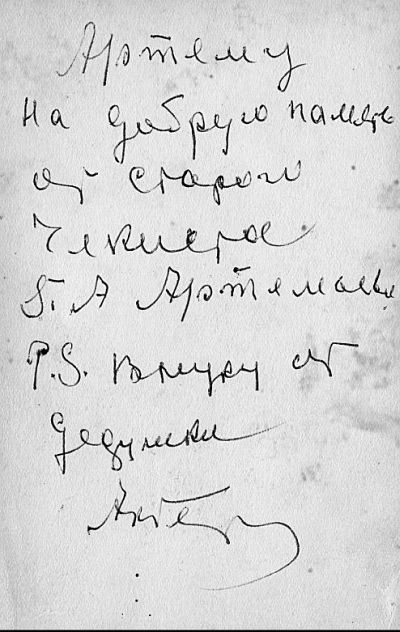 Артему
на добрую память
от старого
Чекиста
Б. А Артемьева
P.S. внуку от
дедушки